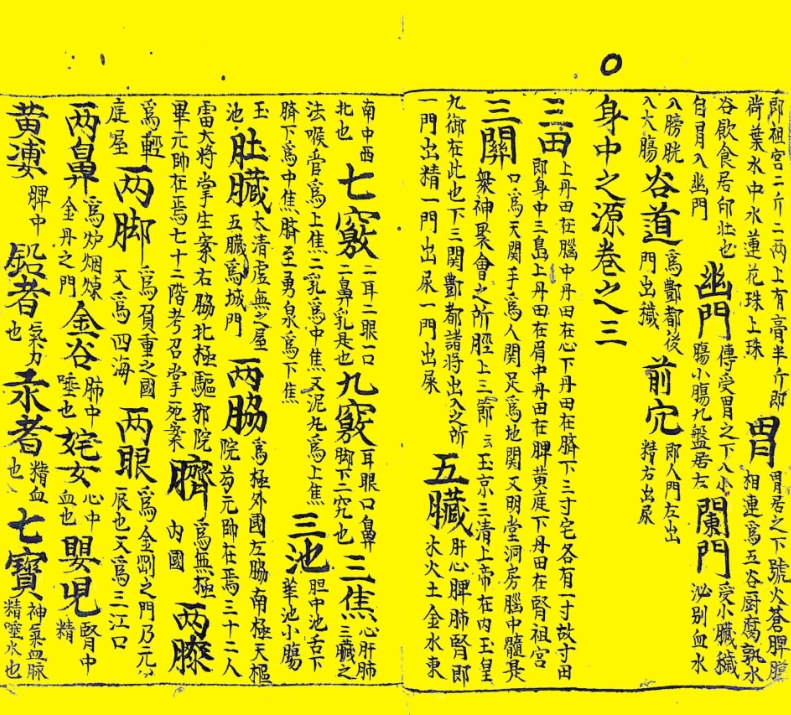 即祖宮二斤二两上有膏半斤即
荷葉水中水蓮花珠上珠 胃 胃若之下號火蒼脾膜相連爲五谷厨腐孰水
谷飲食居卯壮也
自胃入幽門 幽門 傳受胃之下入小腸小腸九盤居左 闌門 受小臟穢泌别血水
入膀胱
入大腸 谷道 爲酆都後門出穢 前宂 即人門左出精方出尿
身中之源卷之三
三田 上丹田在腦中丹田在心下丹田在臍下三寸宅各有一寸故寸田即身中三島上丹田在眉中丹田在脾黄庭下丹田在腎祖宮
三關 口爲天関手爲人関足爲地関又明堂洞房腦中髓是衆神聚會之所脛上三節云玉京三清上帝在内玉皇
九御在此也下三関酆都諸将出入之所
一門出精一門出尿一門出屎 五臟 肝心脾肺腎即木火土金水東
南中西
北也 七竅 二耳二眼一口二鼻乳是也 九竅 耳眼口鼻脚下二宂也 三焦 心肝肺三臟之
法喉管爲上焦二乳爲中焦又泥丸爲上焦
臍下爲中焦臍至勇泉爲下焦 三池 胆中池舌下華池小腸
玉
池 肚臟 太清虚無之屋五臟爲城門 两脇 爲極外國左脇南極天樞院苟元帥在焉三十二人
雷大将掌生案右脇北極驅邪院
畢元帥在焉七十二階考召掌死案 臍 爲無極内國 两膝
爲輕
庭屋 两脚 爲負重之國又爲四海 两眼 爲金剛之門乃元辰也又爲三江口
两鼻 爲炉烟煉金丹之門 金谷 肺中唾也 姹女 心中血也 嬰児 腎中精
黄凄 脾中 鉛者 氣力也 汞者 精血也 七寶 神氣血脉精唾水也